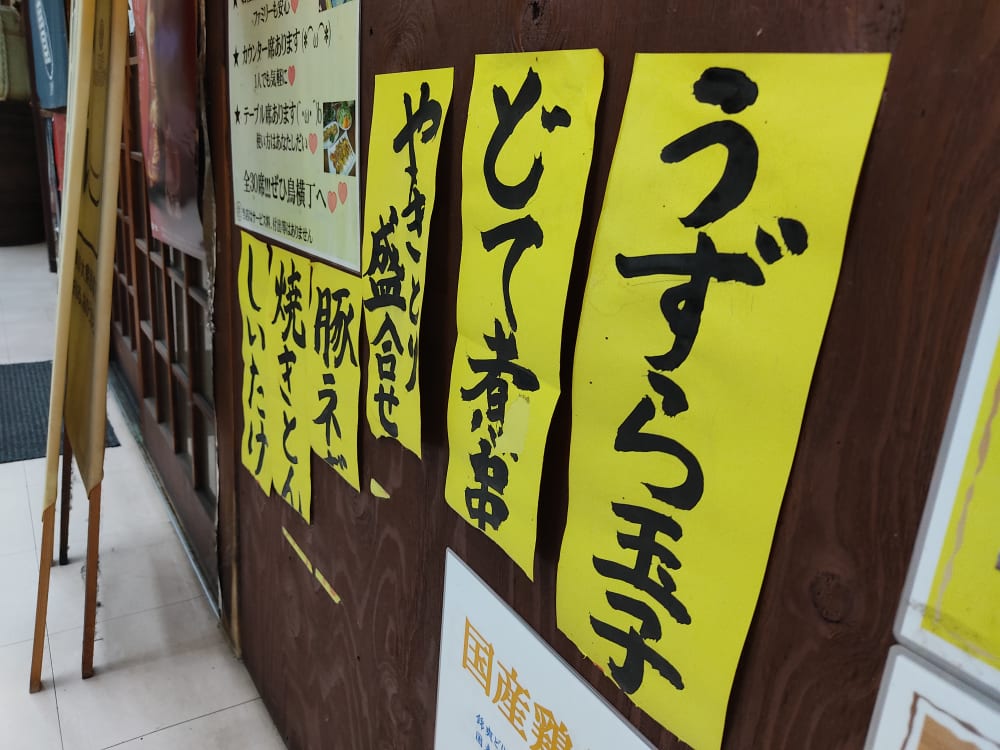 うずら玉子
どて煮串
やきとり
盛合せ
豚ネギ
焼きとん
しいたけ
ファミリーも安心
★ カウンター席あります(*^ω^*)
1人でも気軽に♥
★ テーブル席あります(^-ω-^)b
使い方はあなたしだい♥
全30席!!!ぜひ鳥横丁へ♥♥
国産鶏